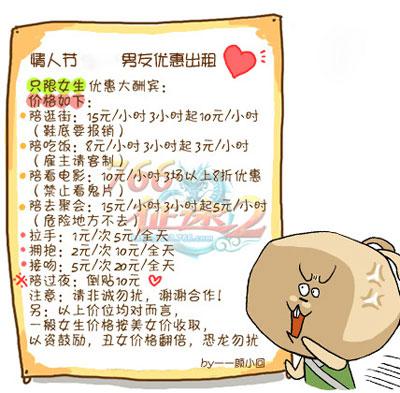 情人节 男友优惠出租
只限女生优惠大酬宾：
价格如下：
陪逛街：15元/小时3小时起10元/小时
（鞋底要报销）
陪吃饭：8元/小时3小时起3元/小时
（雇主请客制）
陪看电影：10元/小时3场以上8折优惠
（禁止看鬼片）
陪去聚会：15元/小时3小时起5元/小时
（危险地方不去）
拉手：1元/次5元/全天
拥抱：2元/次10元/全天
接吻：5元/次20元/全天
※陪过夜：倒贴10元
注意：请非诚勿扰，谢谢合作！
另：以上价位均对而言，
一般女生价格按美女价收取，
以资鼓励，丑女价格翻倍，恐龙勿扰
by——顾小囧